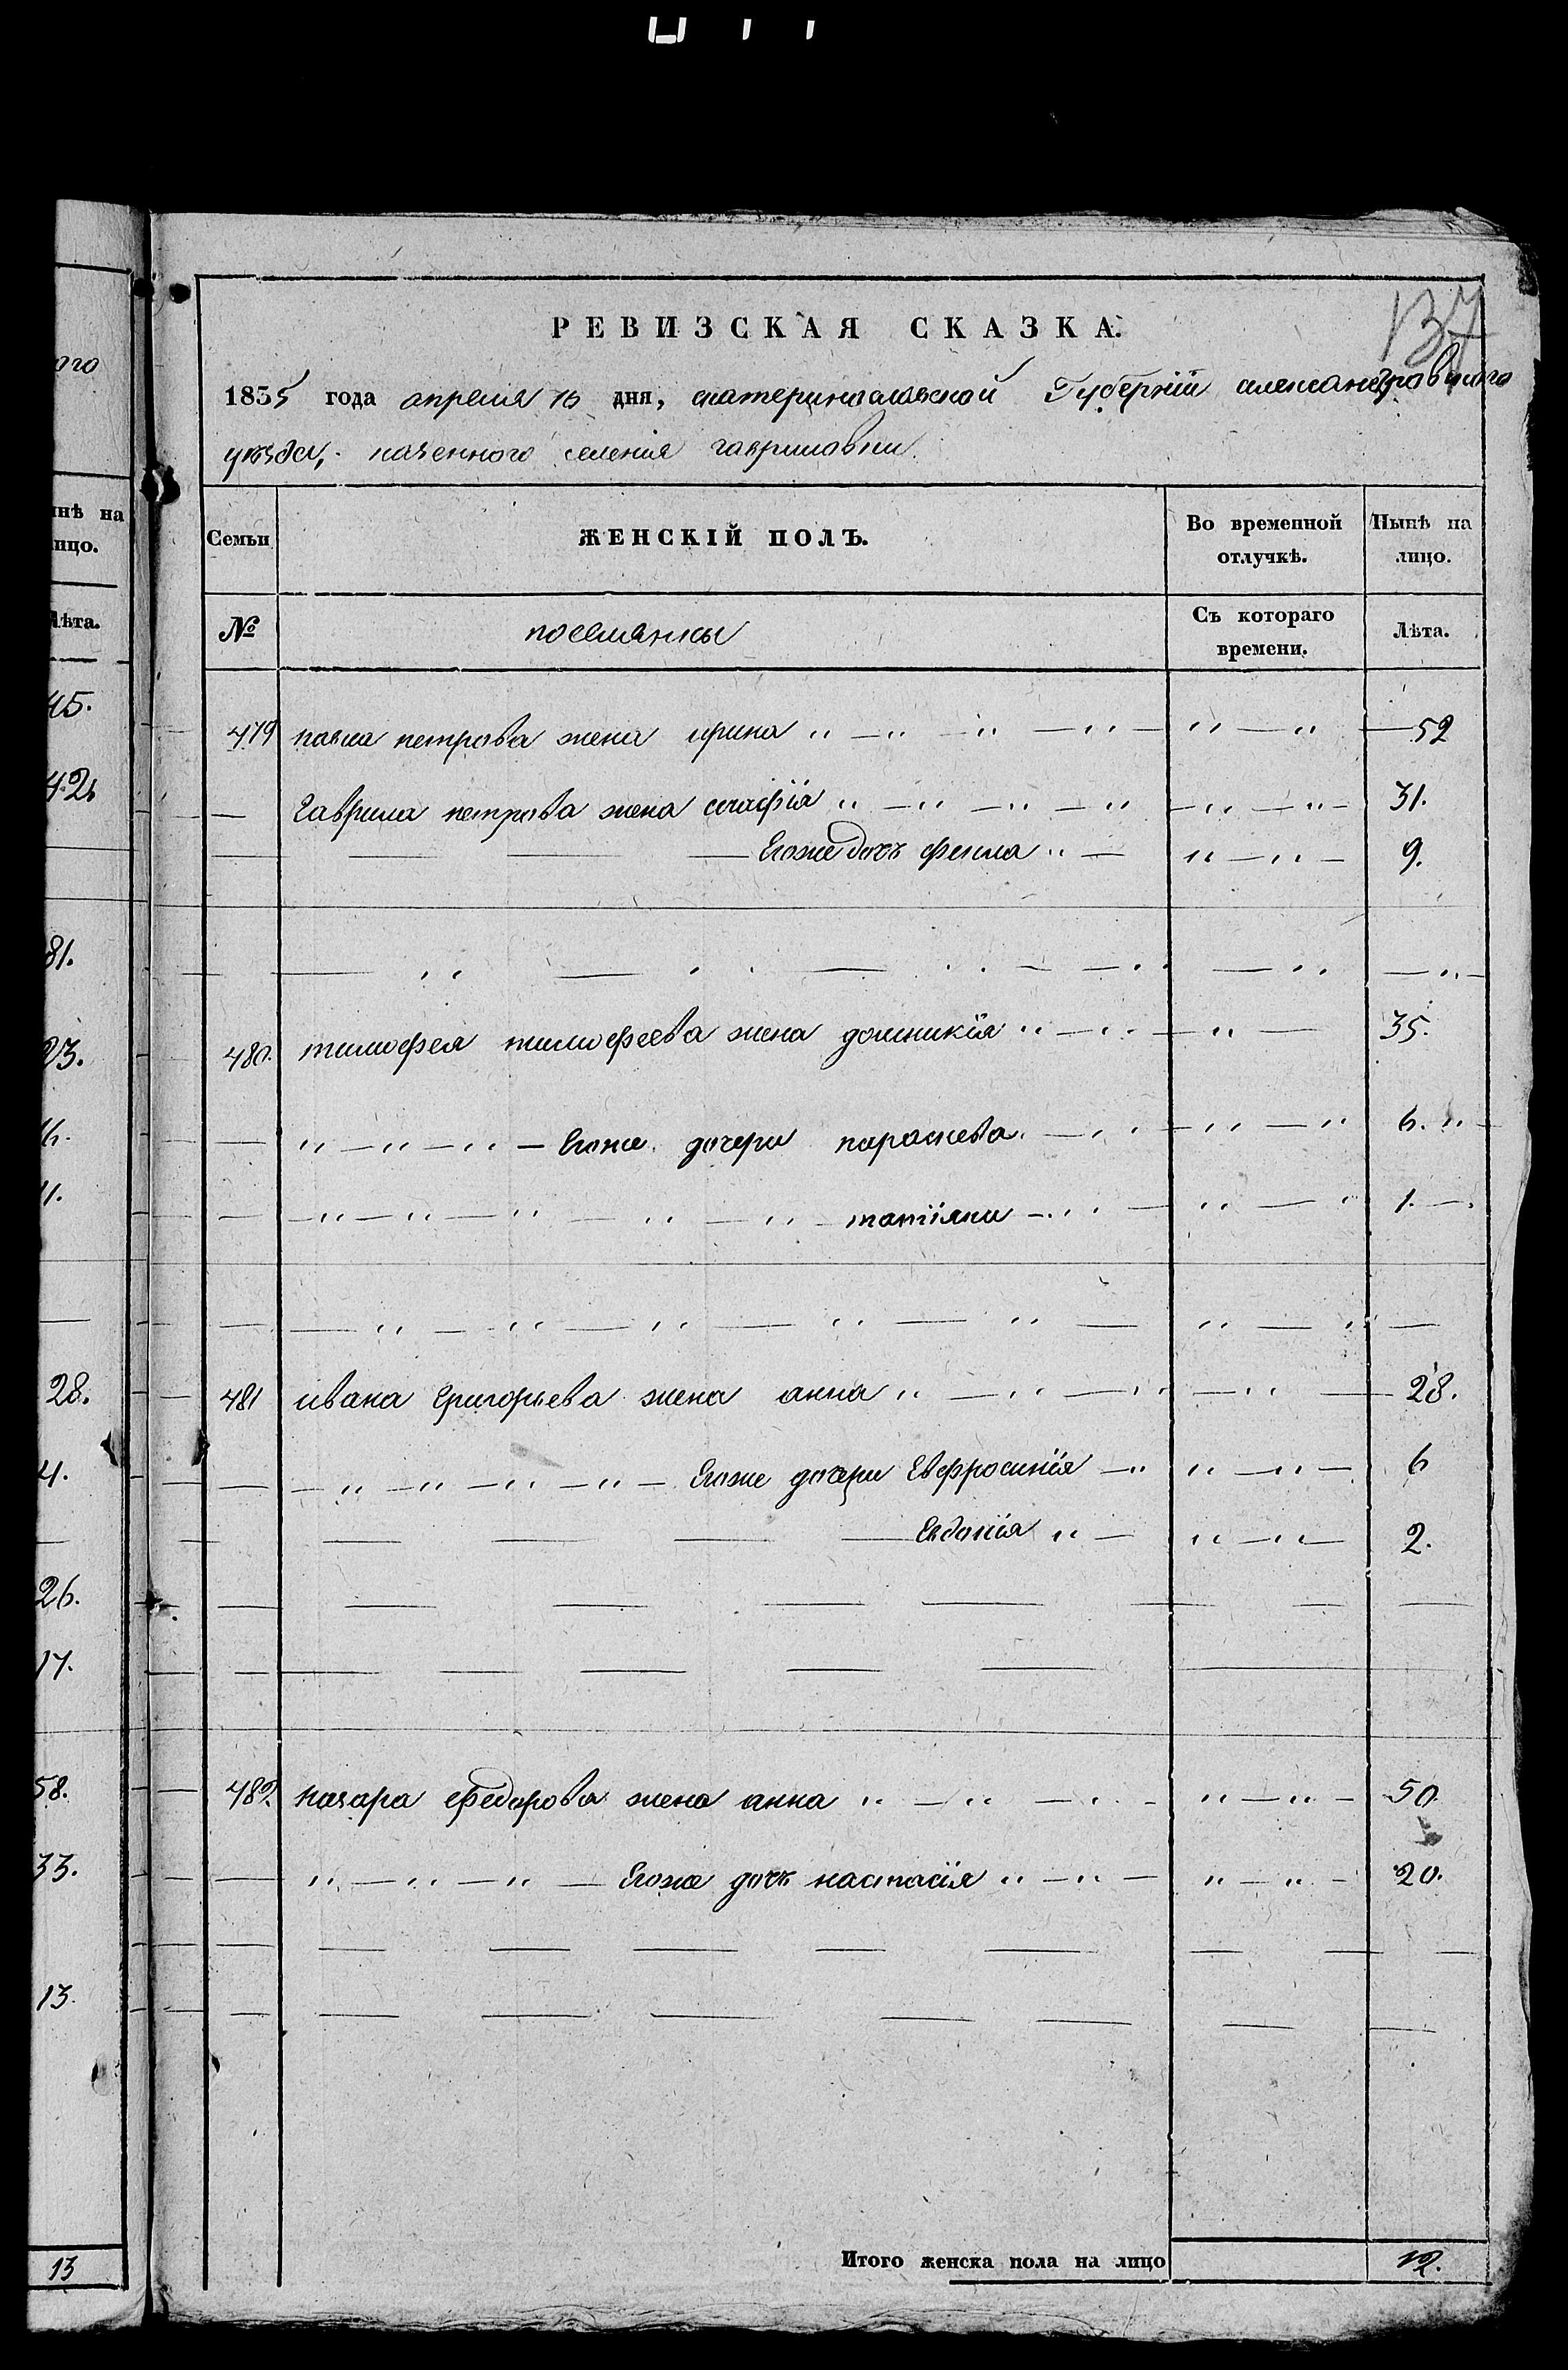 ого
137
РЕВИЗСКАЯ СКАЗКА.
1835 года апреля 16 дня, екатеринославской Губерніи александравского
уѣзда, казенного селенія гавриловки
ынѣ на лицо.
Лѣта.
Семьи
ЖЕНСКІЙ ПОЛЪ.
Во временной отлучкѣ.
Нынѣ на лицо.
№
поселянки
Съ котораго времени.
Лѣта.
45.
479 павла петрова жена ирина 52
42.
Гаврила петрова жена софія 31.
Егоже дочь фекла 9.
81.
23.
480. тимофея тимофеева жена домникія 35.
16.
Егоже дочери параскева 6.
11.
татіяна 1.
28.
481 ивана Григорьева жена анна 28.
4.
Егоже дочери Евфросинія 6
Евдокія 2.
26.
17.
58.
482. назара федорова жена анна 50.
33.
Егоже дочь настасія 20.
13.
13
Итого женска пола на лицо 12.